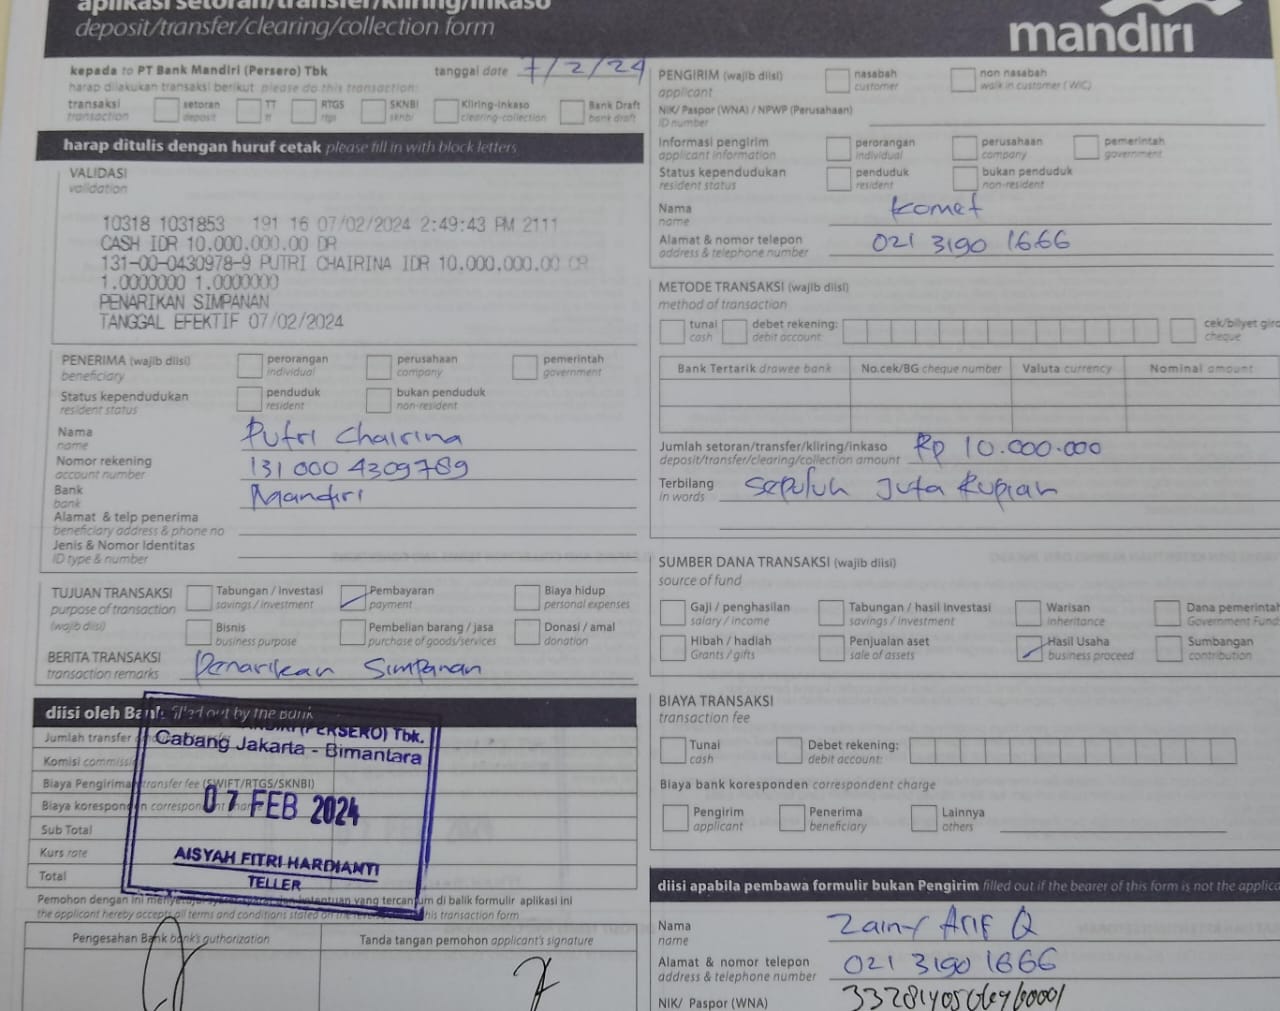 aplikasi setoran/transfer/kliring/inkaso
deposit/transfer/clearing/collection form
mandiri
kepada to PT Bank Mandiri (Persero) Tbk
tanggal date 7/2/24
harap dilakukan transaksi berikut please do this transaction:
transaksi transaction
setoran deposit
TT tt
RTGS rtgs
SKNBI sknbi
Kliring-inkaso clearing-collection
Bank Draft bank draft
harap ditulis dengan huruf cetak please fill in with block letters
VALIDASI
validation
10318 1031853 191 16 07/02/2024 2:49:43 PM 2111
CASH IDR 10.000.000.00 DR
131-00-0430978-9 PUTRI CHAIRINA IDR 10.000.000.00 CR
1.0000000 1.0000000
PENARIKAN SIMPANAN
TANGGAL EFEKTIF 07/02/2024
PENERIMA (wajib diisi)
beneficiary
perorangan individual
perusahaan company
pemerintah government
Status kependudukan
resident status
penduduk resident
bukan penduduk non-resident
Nama
name
Putri Chairina
Nomor rekening
account number
131 000 4309789
Bank
bank
Mandiri
Alamat & telp penerima
beneficiary address & phone no
Jenis & Nomor Identitas
ID type & number
TUJUAN TRANSAKSI
purpose of transaction
(wajib diisi)
Tabungan / Investasi savings / investment
Pembayaran payment
Biaya hidup personal expenses
Bisnis business purpose
Pembelian barang / jasa purchase of goods/services
Donasi / amal donation
BERITA TRANSAKSI
transaction remarks
Penarikan Simpanan
diisi oleh Bank filled out by the Bank
Jumlah transfer
Komisi commission
Biaya Pengiriman transfer fee (SWIFT/RTGS/SKNBI)
Biaya koresponden correspondent
Sub Total
Kurs rate
Total
(PERSERO) Tbk.
Cabang Jakarta - Bimantara
07 FEB 2024
AISYAH FITRI HARDIANTI
TELLER
Pemohon dengan ini menyetujui tercantum di balik formulir aplikasi ini
the applicant hereby accepts all terms and conditions stated on the this transaction form
Pengesahan Bank bank's authorization
Tanda tangan pemohon applicant's signature
PENGIRIM (wajib diisi)
applicant
nasabah customer
non nasabah walk in customer (WIC)
NIK/ Paspor (WNA) / NPWP (Perusahaan)
ID number
Informasi pengirim
applicant information
perorangan individual
perusahaan company
pemerintah government
Status kependudukan
resident status
penduduk resident
bukan penduduk non-resident
Nama
name
Komet
Alamat & nomor telepon
address & telephone number
021 3190 1666
METODE TRANSAKSI (wajib diisi)
method of transaction
tunai cash
debet rekening: debit account:
cek/bilyet giro cheque
Bank Tertarik drawee bank
No.cek/BG cheque number
Valuta currency
Nominal amount
Jumlah setoran/transfer/kliring/inkaso
deposit/transfer/clearing/collection amount
Rp 10.000.000
Terbilang
in words
Sepuluh Juta Rupiah
SUMBER DANA TRANSAKSI (wajib diisi)
source of fund
Gaji / penghasilan salary / income
Tabungan / hasil investasi savings / investment
Warisan inheritance
Dana pemerintah Government Fund
Hibah / hadiah Grants / gifts
Penjualan aset sale of assets
Hasil Usaha business proceed
Sumbangan contribution
BIAYA TRANSAKSI
transaction fee
Tunai cash
Debet rekening: debit account:
Biaya bank koresponden correspondent charge
Pengirim applicant
Penerima beneficiary
Lainnya others
diisi apabila pembawa formulir bukan Pengirim filled out if the bearer of this form is not the applica
Nama
name
Zainy Arif Q
Alamat & nomor telepon
address & telephone number
021 3190 1666
NIK/ Paspor (WNA)